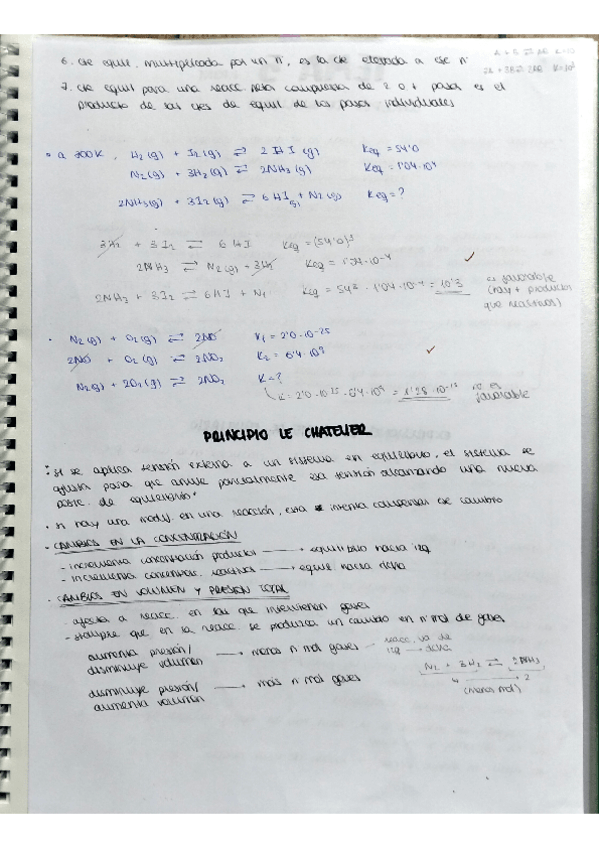 6. cte equil. multiplicada por un nº, es la cte elevada a ese nº
A + B ⇄ AB K=10
7. cte equil para una reacc. neta compuesta de 2 o + pasos es el
producto de las ctes de equil de los pasos individuales
a 700K, H₂(g) + I₂(g) ⇄ 2HI(g) Keq = 54'0
N₂(g) + 3H₂(g) ⇄ 2NH₃(g) Keq = 1'04·10⁻⁴
2NH₃(g) + 3I₂(g) ⇄ 6HI(g) + N₂(g) Keq = ?
3H₂ + 3I₂ ⇄ 6HI Keq = (54'0)³
2NH₃ ⇄ N₂(g) + 3H₂ Keq = 1'04·10⁻⁴ ✓
2NH₃ + 3I₂ ⇄ 6HI + N₂ Keq = 54³ · 1'04·10⁻⁴ = 10'3 es favorable
(hay + productos
que reactivos)
N₂(g) + O₂(g) ⇄ 2NO K₁ = 2'0·10⁻²⁵
2NO + O₂(g) ⇄ 2NO₂ K₂ = 6'4·10⁹ ✓
N₂(g) + 2O₂(g) ⇄ 2NO₂ K = ?
K = 2'0·10⁻²⁵ · 6'4·10⁹ = 1'28·10⁻¹⁵ no es
favorable
PRINCIPIO LE CHATELIER
"si se aplica tensión externa a un sistema en equilibrio, el sistema se
ajusta para que anule parcialmente esa tensión alcanzando una nueva
posic. de equilibrio"
· si hay una modif. en una reacción, esta intenta compensar ese cambio
· CAMBIOS EN LA CONCENTRACIÓN
- incrementa concentración productos → equilibrio hacia izq
- incrementa concentrac. reactivos → equil hacia dcha
· CAMBIOS EN VOLUMEN Y PRESIÓN TOTAL
- afecta a reacc. en las que intervienen gases
- siempre que en la reacc. se produzca un cambio en nº mol de gases
aumenta presión/
disminuye volumen → menos n mol gases - reacc. va de
izq → dcha
N₂ + 3H₂ ⇄ 2NH₃
4 → 2
(menos mol)
disminuye presión/
aumenta volumen → más n mol gases